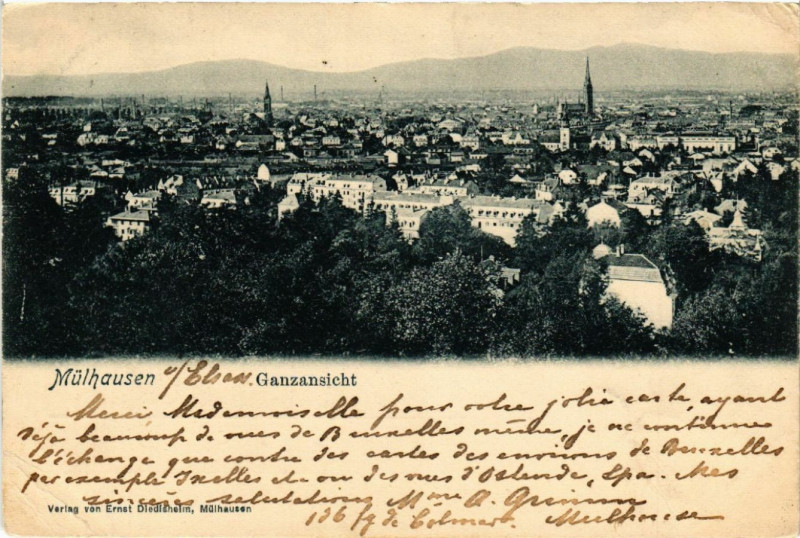 Mülhausen i/Elsass. Ganzansicht
Merci Mademoiselle pour votre jolie carte, ayant
déjà beaucoup de vues de Bruxelles même, je ne continue
l'échange que contre des cartes des environs de Bruxelles
par exemple Ixelles etc ou des vues d'Ostende, Spa. Mes
sincères salutations Mme A. Grimm
Verlag von Ernst Diedisheim, Mülhausen
136 fg de Colmar. Mulhouse